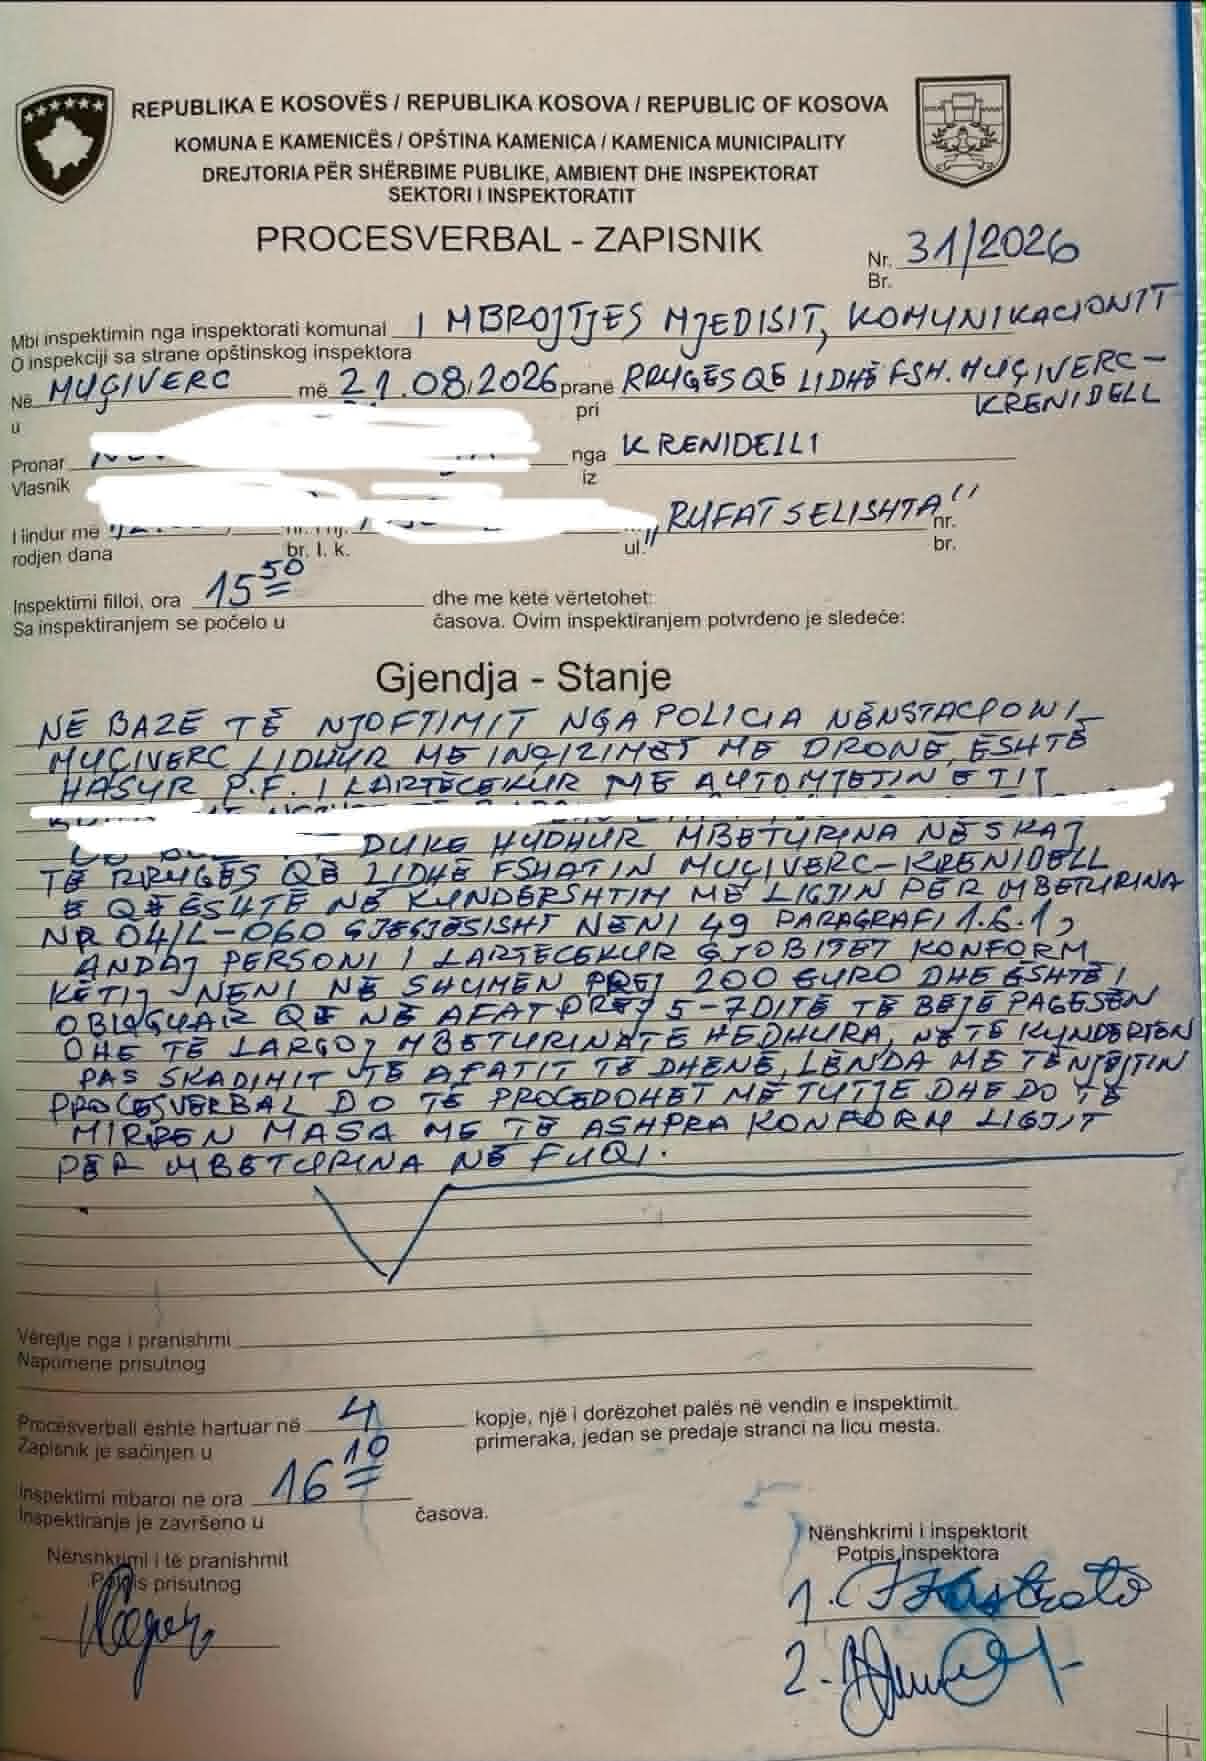 REPUBLIKA E KOSOVËS / REPUBLIKA KOSOVA / REPUBLIC OF KOSOVA
KOMUNA E KAMENICËS / OPŠTINA KAMENICA / KAMENICA MUNICIPALITY
DREJTORIA PËR SHËRBIME PUBLIKE, AMBIENT DHE INSPEKTORAT
SEKTORI I INSPEKTORATIT
PROCESVERBAL - ZAPISNIK
Nr. 31/2026
Br.
Mbi inspektimin nga inspektorati komunal I MBROJTJES MJEDISIT, KOMUNIKACIONIT
O inspekciji sa strane opštinskog inspektora
Në MUÇIVERC më 21.08/2026 pranë RRUGËS QË LIDHË FSH. MUÇIVERC-
u pri KRENIDELL
Pronar nga KRENIDELLI
Vlasnik iz
I lindur më „RUFAT SELISHTA" nr.
rodjen dana br. l. k. ul. br.
Inspektimi filloi, ora 15 50 dhe me këtë vërtetohet:
Sa inspektiranjem se počelo u časova. Ovim inspektiranjem potvrđeno je sledeće:
Gjendja - Stanje
NË BAZË TË NJOFTIMIT NGA POLICIA NËNSTACIONI
MUÇIVERC LIDHUR ME INÇIZIMET ME DRONË, ËSHTË
HASUR P.F. I LARTËCEKUR ME AUTOMJETIN E TIJ
DUKE HUDHUR MBETURINA NË SKAJ
TË RRUGËS QË LIDHË FSHATIN MUÇIVERC-KRENIDELL
E QË ËSHTË NË KUNDËRSHTIM ME LIGJIN PËR MBETURINA
NR 04/L-060 GJEGJËSISHT NENI 49 PARAGRAFI 1.6.1,
ANDAJ PERSONI I LARTËCEKUR GJOBITET KONFORM
KËTIJ NENI NË SHUMËN PREJ 200 EURO DHE ËSHTË I
OBLIGUAR QË NË AFAT PREJ 5-7 DITË TË BËJË PAGESËN
DHE TË LARGOJ MBETURINAT E HEDHURA, NË TË KUNDËRTËN
PAS SKADIMIT TË AFATIT TË DHËNË, LËNDA ME TË NJËJTIN
PROCESVERBAL DO TË PROCEDOHET MË TUTJE DHE DO TË
MIRREN MASA ME TË ASHPRA KONFORM LIGJIT
PËR MBETURINA NË FUQI.
Vërejtje nga i pranishmi
Napomene prisutnog
Procesverbali është hartuar në 4 kopje, një i dorëzohet palës në vendin e inspektimit.
Zapisnik je sačinjen u primeraka, jedan se predaje stranci na licu mesta.
Inspektimi mbaroi në ora 16 10
Inspektiranje je završeno u časova.
Nënshkrimi i të pranishmit
Potpis prisutnog
Nënshkrimi i inspektorit
Potpis inspektora
1.
2.